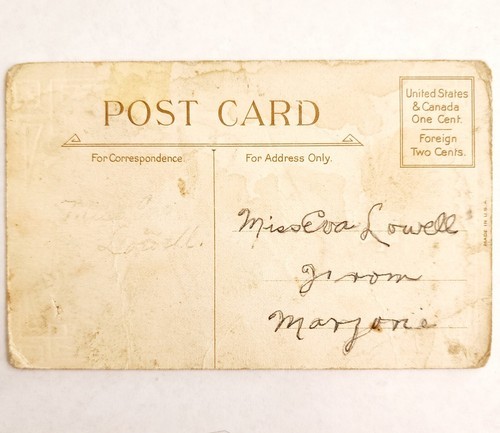 POST CARD
United States
& Canada
One Cent.
Foreign
Two Cents.
For Correspondence.
For Address Only.
MADE IN U.S.A.
Lowell.
Miss Eva Lowell
From
Marjorie